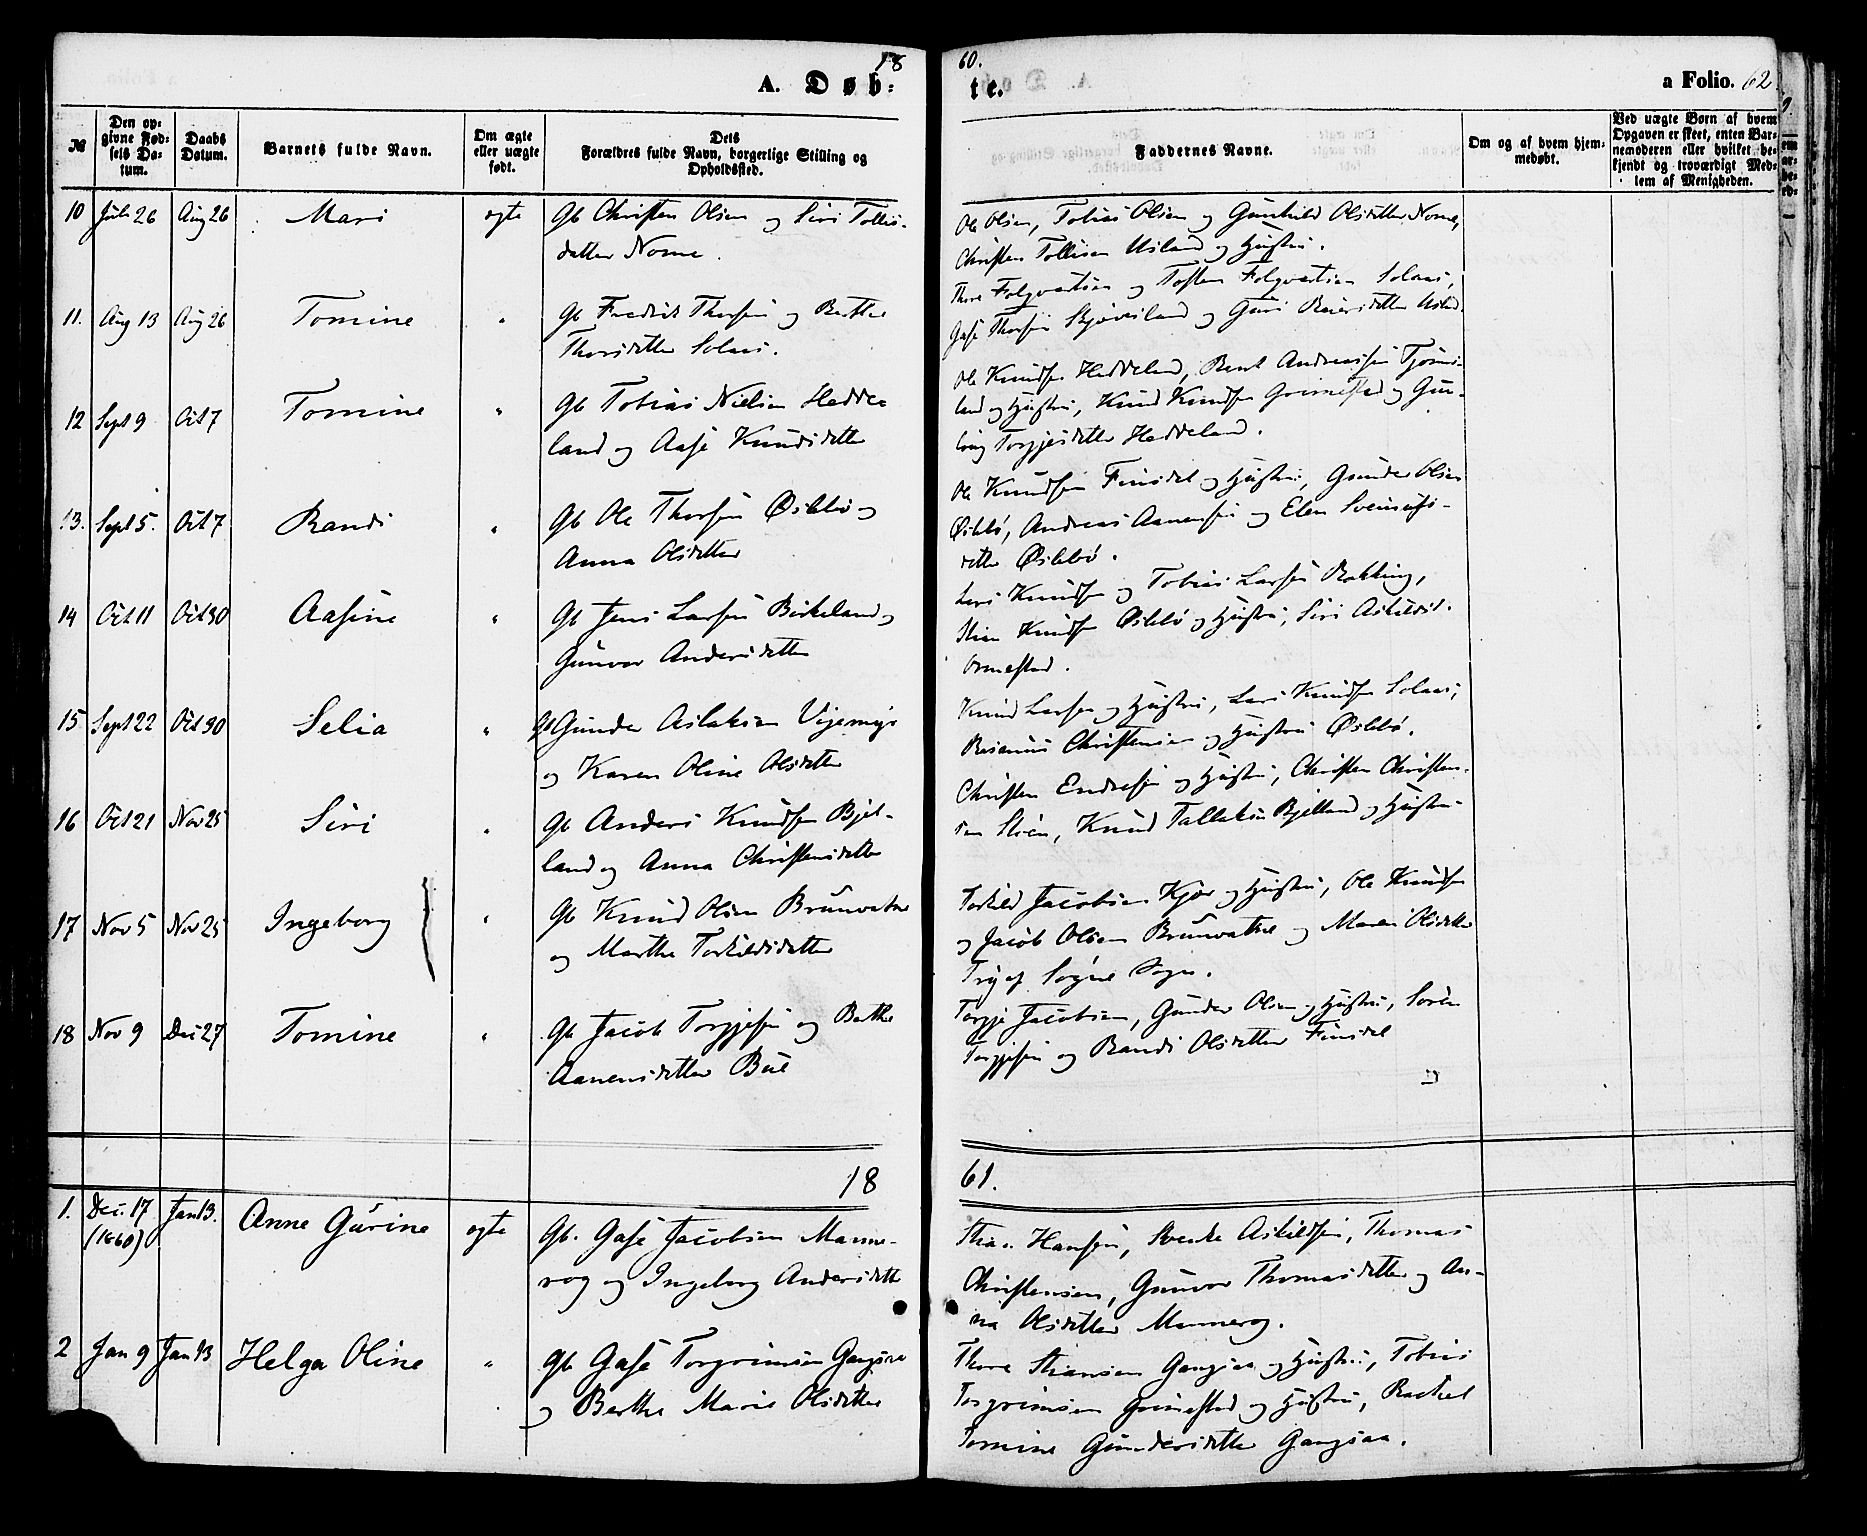 18 60.
A. Døb: te. a Folio. 62
№ Den opgivne Fødsels Datum. Daabs Datum. Barnets fulde Navn. Om ægte eller uægte født. Dets Forældres fulde Navn, borgerlige Stilling og Opholdssted. Faddernes Navne. Om og af hvem hjemmedøbt. Ved uægte Børn af hvem Opgaven er skeet, enten Barnemoderen eller hvilket bekjendt og troværdigt Medlem af Menigheden.
10 Juli 26 Aug 26 Mari egte Gb Christen Olsen og Siri Tollis-
datter Nome.
Ole Olsen, Tobias Olsen og Gunhild Olsdatter Nome,
Christen Tollisen Usland og Hustru.
11. Aug 13 Aug 26 Tomine " Gb Fredrik Thorsen og Berthe
Thorsdatter Solaas.
Thore Folqvartsen og Tosten Folqvartsen Solaas,
Gase Thorsen og Guri Usland
12 Sept 9 Oct 7 Tomine " Gb Tobias Nielsen Hedde-
land og Aase Knudsdatter
Ole Knudsen Heddeland, Bent Andreassen Tjoms-
land og Hustru, Knud Knudsen Grimestad og Gun-
borg Torgjesdatter Heddeland.
13. Sept 5. Oct 7 Randi " Gb Ole Thorsen Øslebø og
Anna Olsdatter
Ole Knudsen Finsdal og Hustru, Gunder Olsen
Øslebø, Andreas Aanensen og Elen
datter Øslebø.
14 Oct 11 Oct 30 Aasine " Gb Jens Larsen Birkeland og
Gunvor Andersdatter
Lars Knudsen og Tobias Larsen
Stian Knudsen Øslebø og Hustru, Siri Askildsd.
Ormestad.
15 Sept 22 Oct 30 Selia " Gb Gunder Aslaksen Vigemyr
og Karen Oline Olsdatter
Knud Larsen og Hustru, Lars Knudsen Solaas,
Rasmus Christensen og Hustru Øslebø.
16 Oct 21 Nov 25 Siri " Gb Anders Knudsen Bjel-
land og Anna Christensdatter
Christen Endresen og Hustru, Christen Christen-
sen Stien, Knud Tallaksen Bjelland og Hustru
17 Nov 5 Nov 25 Ingeborg " Gb Knud Olsen Brunvatne
og Marthe Torkildsdatter
Torkild Jacobsen Kjær og Hustru, Ole Knudsen
og Jacob Olsen Brunvatne og Maren Olsdatter
Try af Søgne Sogn.
18 Nov 9 Dec 27 Tomine " Gb Jacob Torgjesen og Berthe
Aanensdatter Bue
Torgje Jacobsen, Gunder Olsen og Hustru, Soren
Torgjesen og Randi Olsdatter Finsdal
18 61.
1. Dec. 17 (1860) Jan 13. Anne Gurine egte Gb. Gase Jacobsen Manne-
rog og Ingeborg Andersdatt
Stian Hansen, Askildsen, Thomas
Christensen, Gunvor Thomasdatter og An-
na Olsdatter Mannerog.
2 Jan 9 Jan 13 Helga Oline " Gb Gase Torgrimsen Gangsaa
og Berthe Marie Olsdatter
Thore Stiansen Gangsaa og Hustru, Tobias
Torgrimsen Grimestad og Hustru, Rachel
Tomine Gundersdatter Gangsaa.